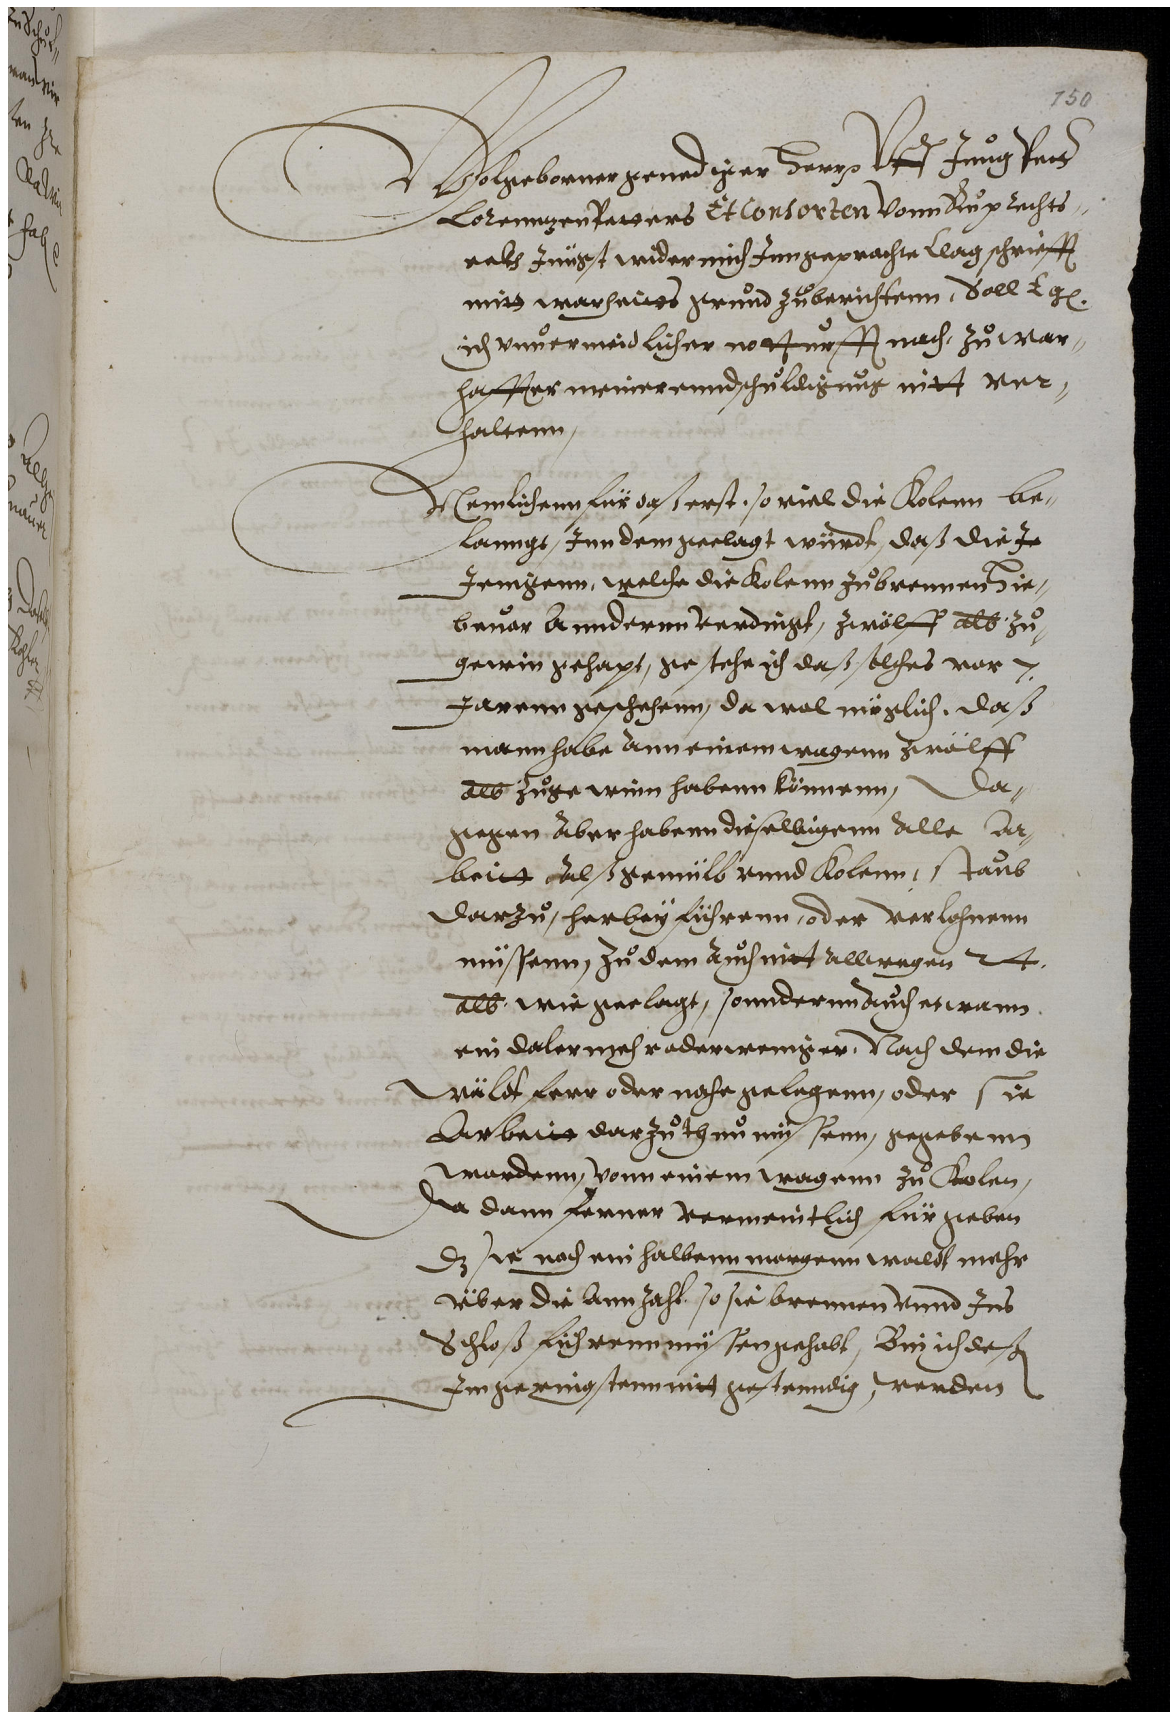 150
Wolgeborner genediger Herr, Uff Jung Peter
Lorenntzen Pawers Et Consorten vonn Ruprechts¬
rots Jüngst wider mich Inngeprachte Clagschriefft
mitt warheitts grund zůberichtenn, Soll E g.
ich unůermeidlicher notturfft nach, zů war¬
haffter meiner enndschůldigung nitt ver¬
haltenn,
Nemlichenn für daß erst, so viel die Kolenn be¬
lanngt, Inn dem geclagt würdt, daß die Je
Jenigenn, welche die Kolenn zů brennen Hie¬
beuor Anndernn verdingt, zwölff alb. zů
gewin gehapt, gestehe ich daß solches vor 7.
Jarenn geschehenn, da wol müglich, daß
mann habe Ann einem wagenn zwölff
alb. zů gewinn habenn können, Da¬
gegen Aber habenn dieselbigenn Alle Ar¬
beitt Alß gemülb unnd Kolenn, staub
darzů, herbey führenn, oder verlohnenn
müssenn, zů dem Auch nitt Allwegen 24.
alb. wie geclagt, sonndernn Auch etwann
ein daler mehr oder weniger, Nach dem die
wäldt ferr oder nahe gelegenn, oder sie
Arbeitt darzů thun müssenn, gegebenn
wordenn, vonn einem wagenn zů Kolen,
Da dann ferner vermeintlich fürgeben
dz sie noch ein halbenn morgenn waldt mehr
über die Annzahl so sie brennen unnd Ins
Schloß führenn müssen gehabt, Bin ich deß
Im geringstenn nitt gestenndig, werden